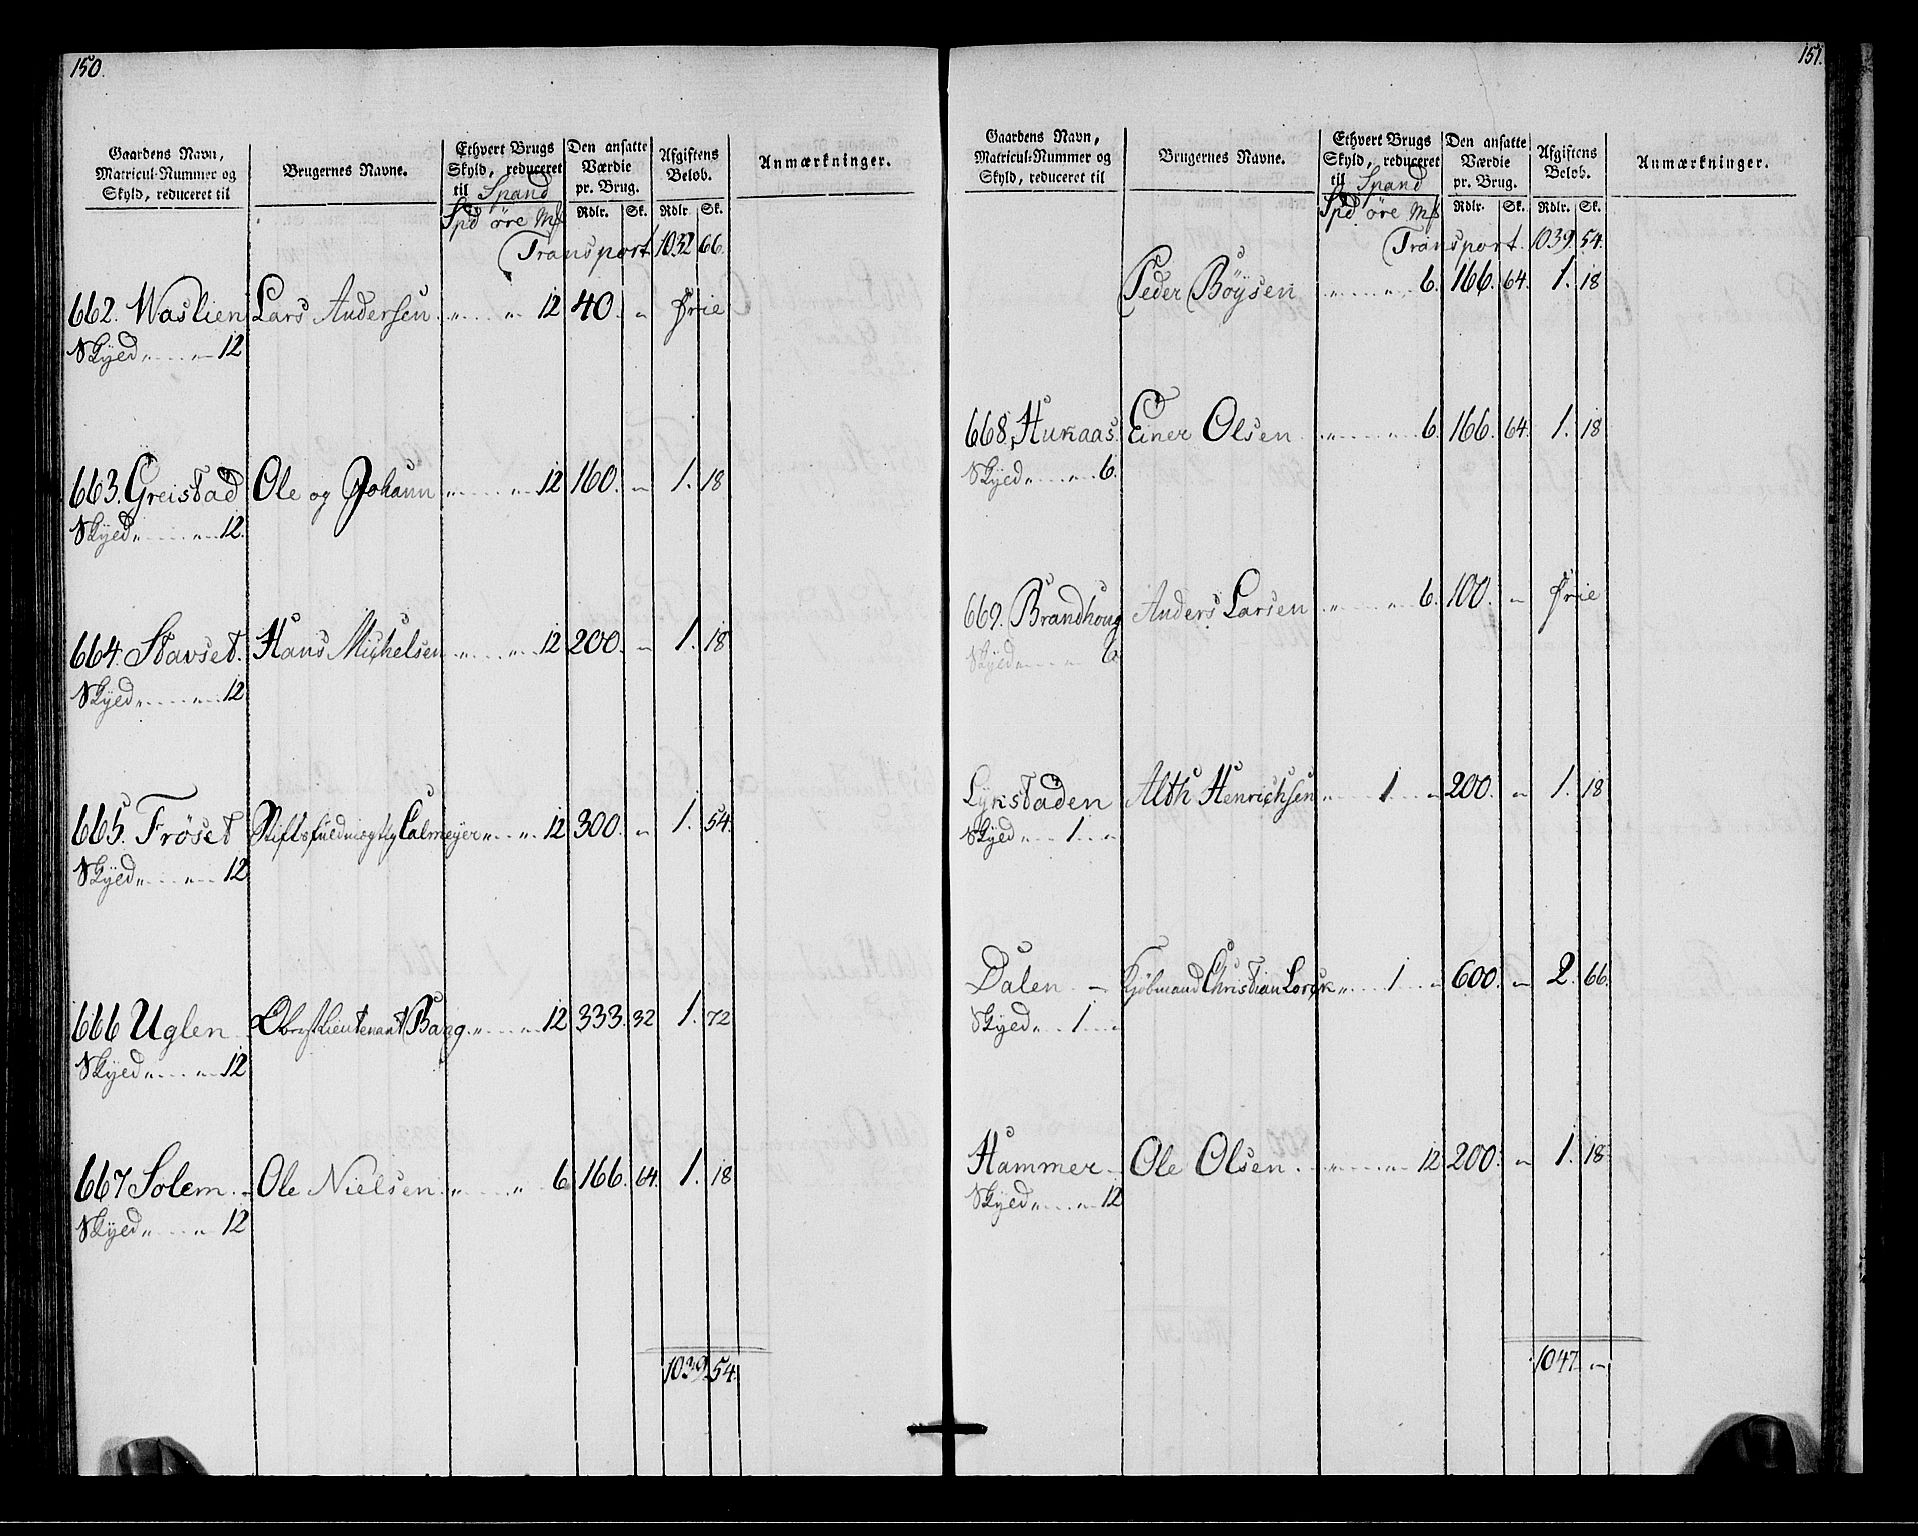 150.
Gaardens Navn, Matricul-Nummer og Skyld, reduceret til
Brugernes Navne.
Ethvert Brugs Skyld, reduceret til Spand
Den ansatte Værdie pr. Brug.
Afgiftens Beløb.
Anmærkninger.
Spd øre Mk Rdlr. Sk. Rdlr. Sk.
Transport 1032 66.
662. Waslien Lars Andersen „ „ 12 40. „ frie
Skyld „ „ 12
663. Greistad Ole og Johann „ „ 12 160. „ 1. 18
Skyld „ „ 12.
664. Stavset. Hans Michelsen „ „ 12 200. „ 1. 18
Skyld „ „ 12
665. Frøset Stiftsfuldmægtig Calmeyer „ „ 12 300. „ 1. 54.
Skyld „ „ 12
666 Uglen Obrystlieutenant Baag. „ „ 12 333. 32 1. 72
Skyld „ „ 12
667 Solem. Ole Nielsen. „ „ 6 166. 64. 1. 18
Skyld „ „ 12
1039. 54.
151.
Gaardens Navn, Matricul-Nummer og Skyld, reduceret til
Brugernes Navne.
Ethvert Brugs Skyld, reduceret til Spand
Den ansatte Værdie pr. Brug.
Afgiftens Beløb.
Anmærkninger.
Spd øre Mk Rdlr. Sk. Rdlr. Sk.
Transport. 1039. 54.
Peder Böysen „ „ 6. 166. 64. 1. 18
668. Hukaas. Einer Olsen „ „ 6. 166. 64. 1. 18
Skyld „ „ 6.
669. Brandhoug Anders Larsen „ „ 6. 100. „ frie
Skyld „ „ 6
Lykstaden Alth Henrichsen „ 1 „ 200. „ 1. 18
Skyld „ 1 „
Dalen — Kjøbmand Christian Lorck „ 1 „ 600. „ 2. 66.
Skyld „ 1 „
Hammer Ole Olsen „ „ 12 200. „ 1. 18
Skyld „ „ 12
1047 „